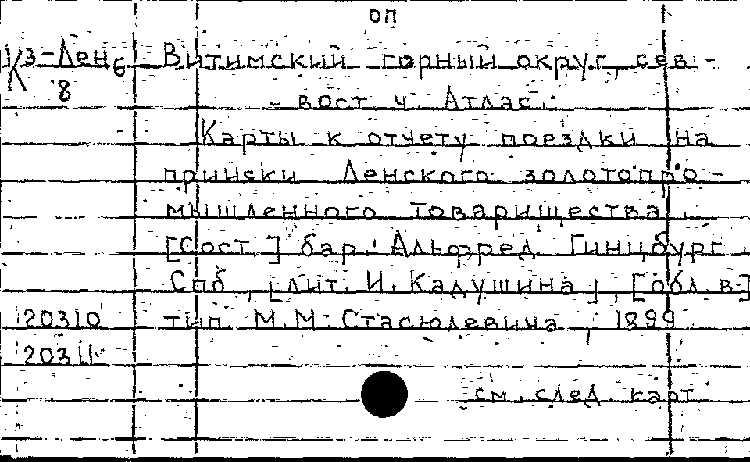 оп
К з-Лен6 Витимский горный округ, сев.-
8 вост. ч. Атлас.
Карты к отчету поездки на
прииски Ленского золотопро-
мышленного товарищества.
[Сост.] бар. Альфред Гинцбург.
Спб., [лит. И. Кадушина], [обл. в]
20310 тип. М.М. Стасюлевича, 1899
20311
см. след. карт.